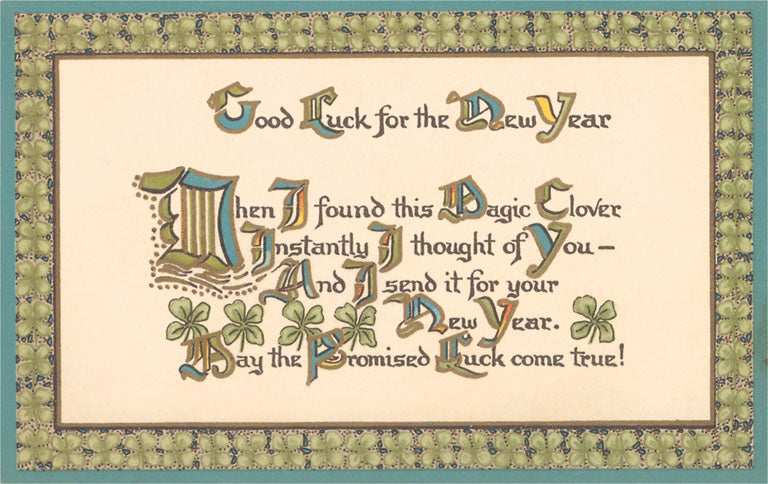 Good Luck for the New Year
When I found this Magic Clover
Instantly I thought of You—
And I send it for your
New Year.
May the Promised Luck come true!